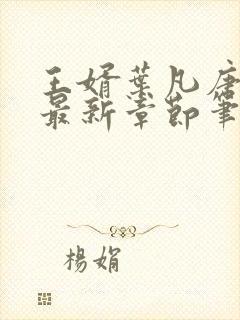 王婿葉凡唐
最新章節筆
楊娟